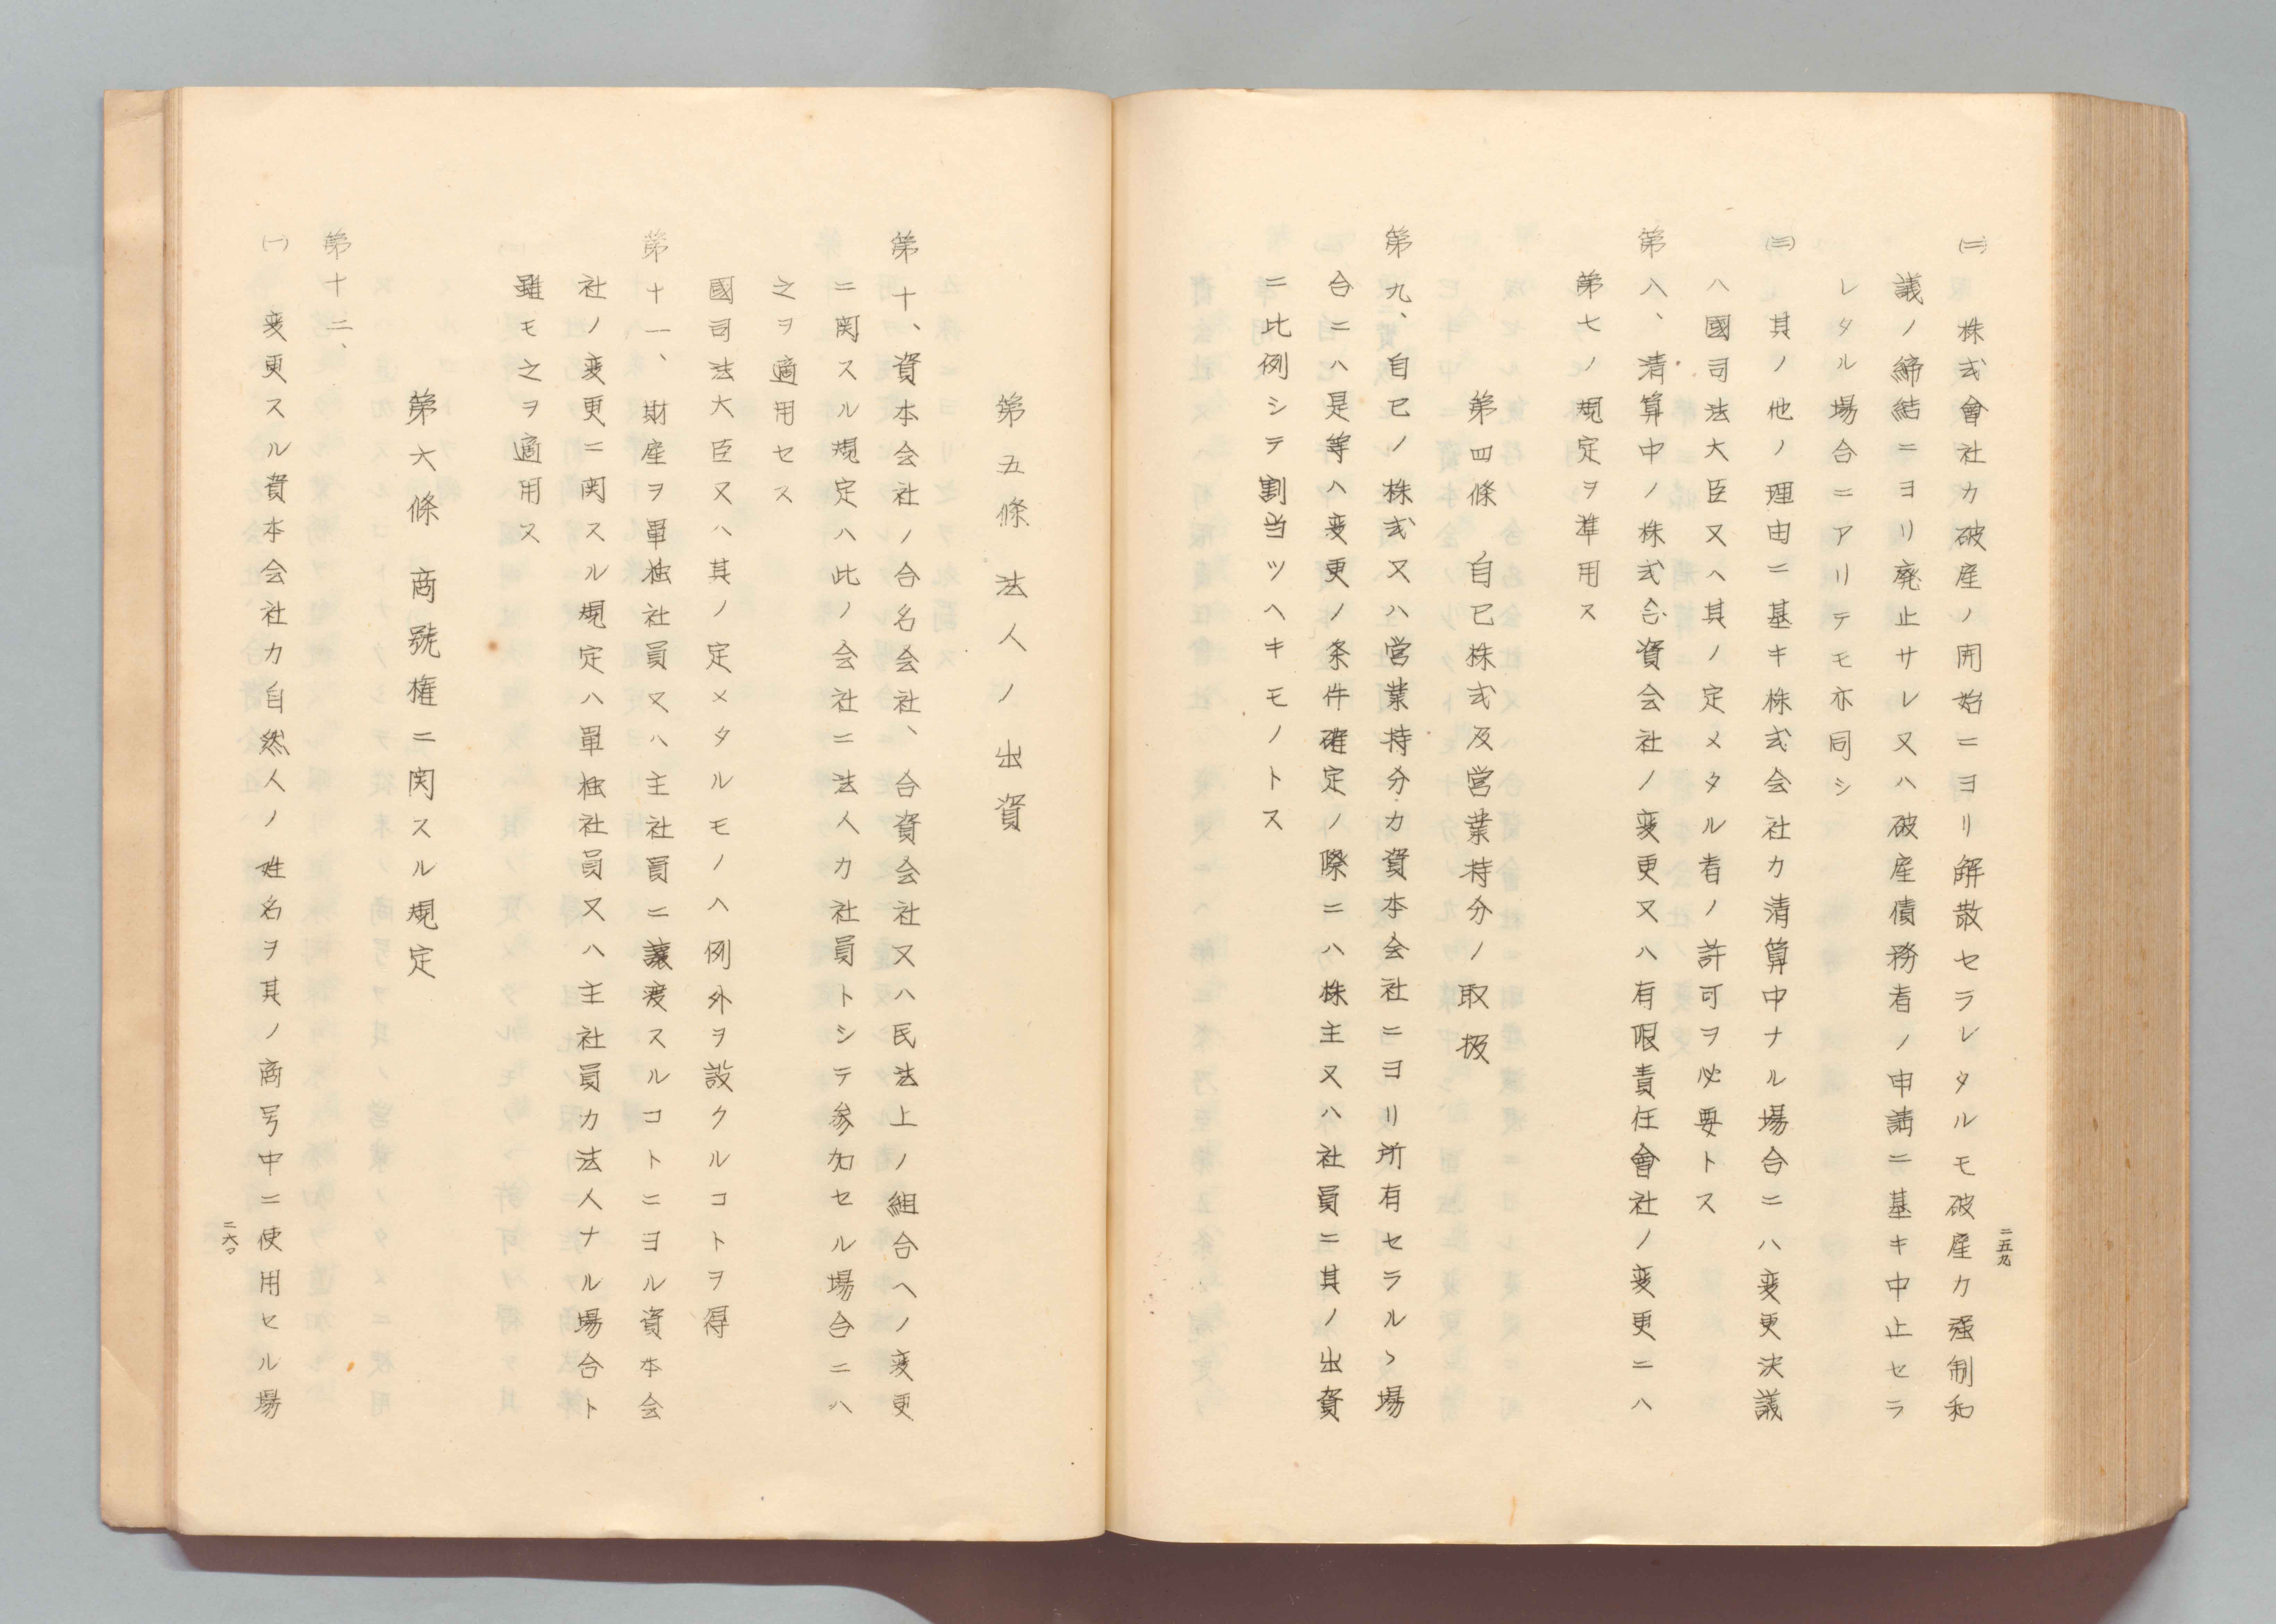 二五九
(二)株式會社カ破産ノ開始ニヨリ解散セラレタルモ破産カ强制和
議ノ締結ニヨリ廃止サレ又ハ破産債務者ノ申請ニ基キ中止セラ
レタル場合ニアリテモ亦同シ
(三)其ノ他ノ理由ニ基キ株式会社カ清算中ナル場合ニハ変更決議
ハ國司法大臣又ハ其ノ定メタル者ノ許可ヲ必要トス
第八、清算中ノ株式合資会社ノ変更又ハ有限責任會社ノ変更ニハ
第七ノ規定ヲ準用ス
第四條 自己株式及営業持分ノ取扱
第九、自己ノ株式又ハ営業持分カ資本会社ニヨリ所有セラルヽ場
合ニハ是等ハ変更ノ条件確定ノ際ニハ株主又ハ社員ニ其ノ出資
ニ比例シテ割当ツヘキモノトス
第五條 法人ノ出資
第十、資本会社ノ合名会社、合資会社又ハ民法上ノ組合ヘノ変更
ニ関スル規定ハ此ノ会社ニ法人カ社員トシテ参加セル場合ニハ
之ヲ適用セス
國司法大臣又ハ其ノ定メタルモノハ例外ヲ設クルコトヲ得
第十一、財産ヲ単独社員又ハ主社員ニ譲渡スルコトニヨル資本会
社ノ変更ニ関スル規定ハ単独社員又ハ主社員カ法人ナル場合ト
雖モ之ヲ適用ス
第六條 商號権ニ関スル規定
第十二、
(一)変更スル資本会社カ自然人ノ姓名ヲ其ノ商号中ニ使用セル場
二六〇